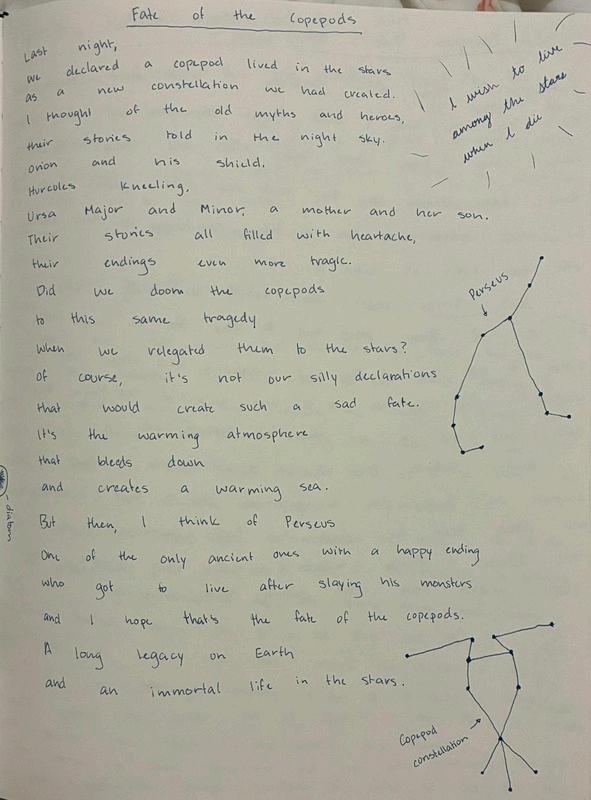 Fate of the Copepods
Last night,
we declared a copepod lived in the stars
as a new constellation we had created.
I thought of the old myths and heroes,
their stories told in the night sky.
Orion and his shield,
Hurcules kneeling,
Ursa Major and Minor, a mother and her son.
Their stories all filled with heartache,
their endings even more tragic.
Did we doom the copepods
to this same tragedy
when we relegated them to the stars?
Of course, it's not our silly declarations
that would create such a sad fate.
It's the warming atmosphere
that bleeds down
and creates a warming sea.
But then, I think of Perseus
One of the only ancient ones with a happy ending
who got to live after slaying his monsters
and I hope that's the fate of the copepods.
A long legacy on Earth
and an immortal life in the stars.
I wish to live
among the stars
when I die
Perseus
diatom
Copepod
constellation